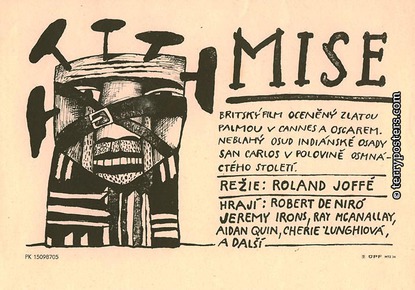 MISE
BRITSKÝ FILM OCENĚNÝ ZLATOU
PALMOU V CANNES A OSCAREM.
NEBLAHÝ OSUD INDIÁNSKÉ OSADY
SAN CARLOS V POLOVINĚ OSMNÁ-
CTÉHO STOLETÍ.
REŽIE: ROLAND JOFFÉ
HRAJÍ: ROBERT DE NIRO
JEREMY IRONS, RAY MCANALLAY,
AIDAN QUIN, CHERIE LUNGHIOVÁ,
A DALŠÍ
PK 15098705
ÚPF
© terryposters.com